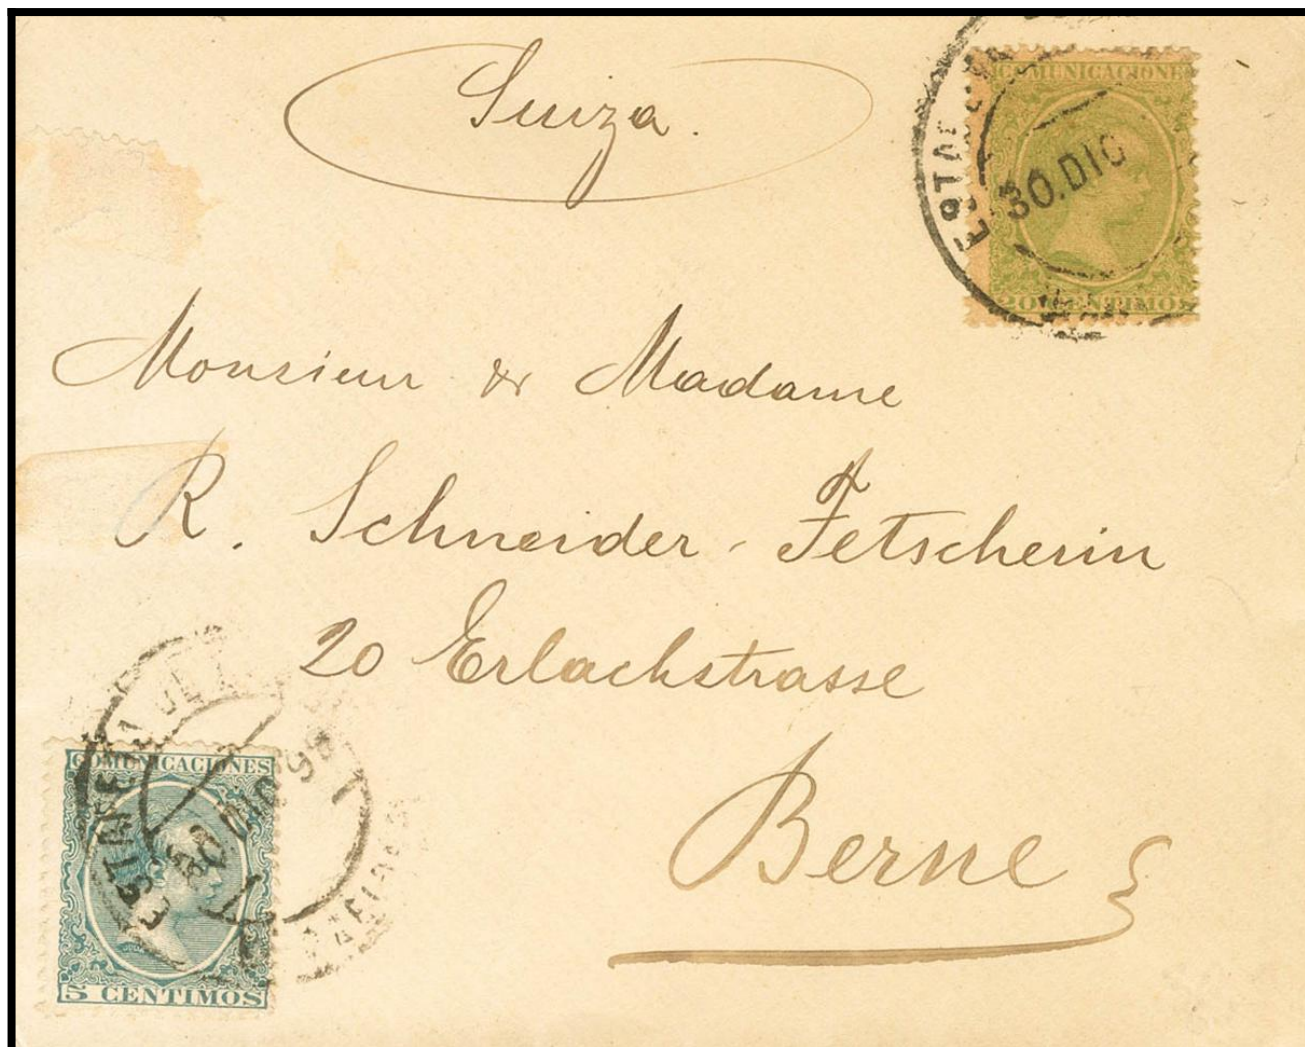 Suiza.
COMUNICACIONE
30.DIC
20 CENTIMOS
Monsieur & Madame
R. Schneider-Fetscherin
20 Erlachstrasse
Berne
COMUNICACIONES
30 DIC 9
5 CENTIMOS